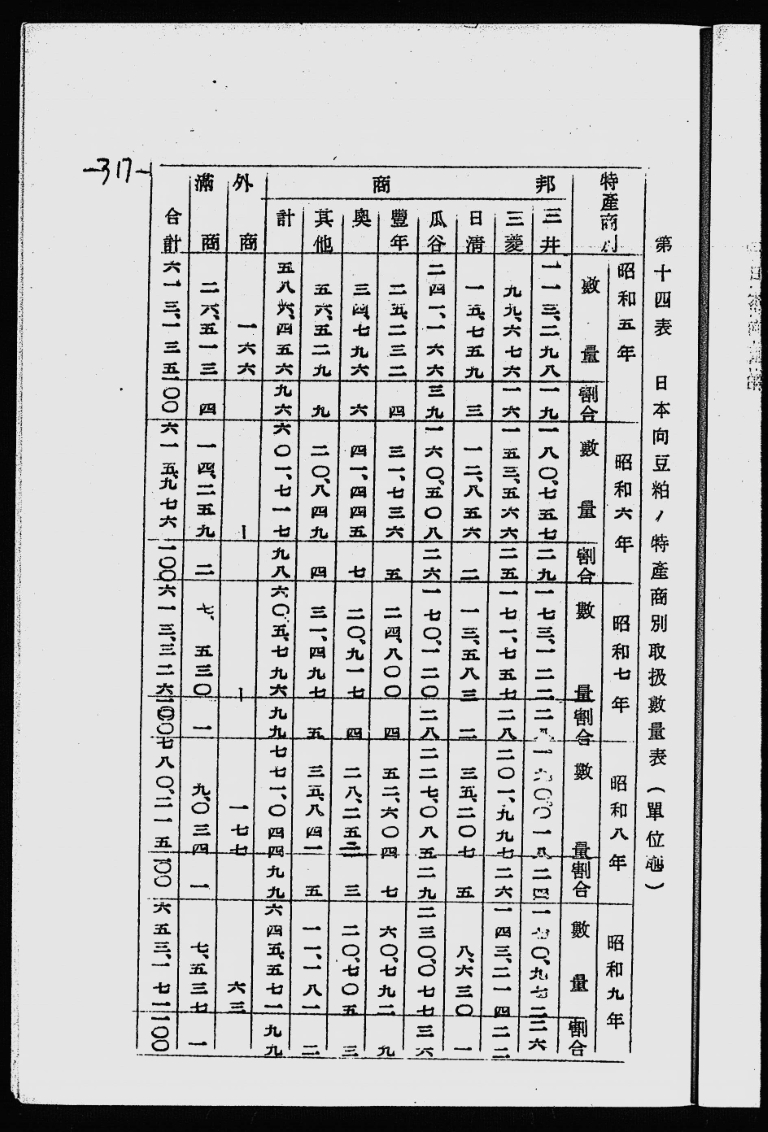 第十四表　日本向豆粕ノ特産商別取扱數量表（單位瓲）
特産商別　昭和五年　昭和六年　昭和七年　昭和八年　昭和九年
數量　割合　數量　割合　數量　割合　數量　割合　數量　割合
邦商
三井　一一三、二九八　一九　一八〇、七五七　二九　一七三、一二二　二八　二四　一七〇、九七二　二六
三菱　九九、六七六　一六　一五三、五六六　二五　一七一、七五七　二八　二〇一、九九七　二六　一四三、二一四　二二
日清　一五、七五九　三　一二、八五六　二　一三、五八三　二　三五、二〇七　五　八、六三〇　一
瓜谷　二四一、一六六　三九　一六〇、五〇八　二六　一七〇、一二〇　二八　二二七、〇八五　二九　二三〇、〇七七　三六
豐年　二五、二三二　四　三一、七三六　五　二四、八〇〇　四　五二、六〇四　七　六〇、七九二　九
奥　三四、七九六　六　四一、四四五　七　二〇、九一七　四　二八、二五二　三　二〇、七〇五　三
其他　五六、五二九　九　二〇、八四九　四　三一、四九七　五　三五、八四一　五　一一、一八一　二
計　五八六、四五六　九六　六〇一、七一七　九八　六〇五、七九六　九九　七七一、〇四四　九九　六四五、五七一　九九
外商　一六六　一　一　一七七　六三
滿商　二六、五一三　四　一四、二五九　二　七、五三〇　一　九、〇三四　一　七、五三七　一
合計　六一三、一三五　一〇〇　六一五、九七六　一〇〇　六一三、三二六　一〇〇　七八〇、二一五　一〇〇　六五三、一七一　一〇〇
—317—